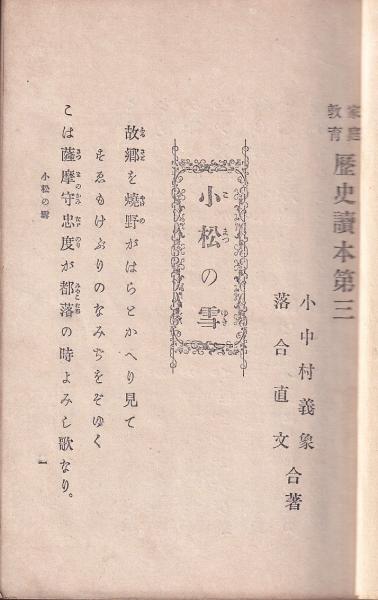 家庭教育 歷史讀本第三
小中村義象
落合直文
合著
小松の雪
故郷を燒野がはらとかへり見て
すゑもけぶりのなみぢをぞゆく
こは薩摩守忠度が都落の時よみし歌なり。
小松の雪
一